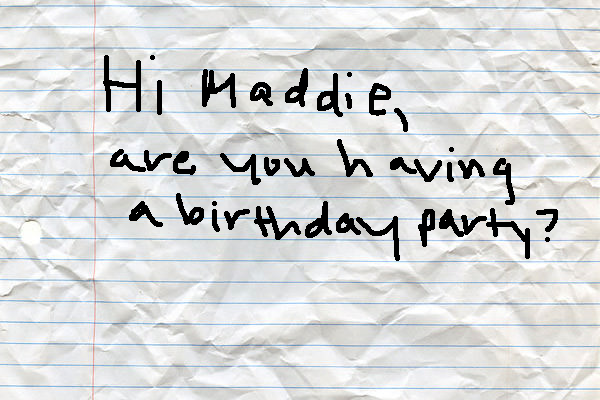 Hi Maddie,
are you having
a birthday party?